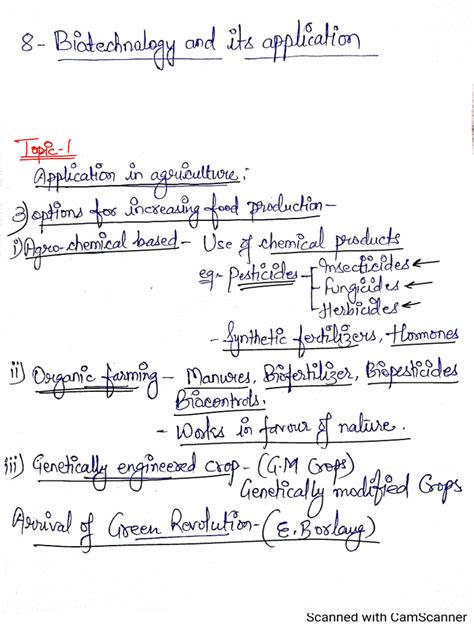 8- Biotechnology and its application
Topic-1
Application in agriculture:
3) options for increasing food production-
i) Agro-chemical based - Use of chemical products
eg- Pesticides - Insecticides ←
Fungicides ←
Herbicides ←
- Synthetic fertilizers, Hormones
ii) Organic farming - Manures, Biofertilizer, Biopesticides
Biocontrols.
- Works in favour of nature.
iii) Genetically engineered crop - (G.M Crops)
Genetically modified Crops
Arrival of Green Revolution - (E. Borlaug)
Scanned with CamScanner